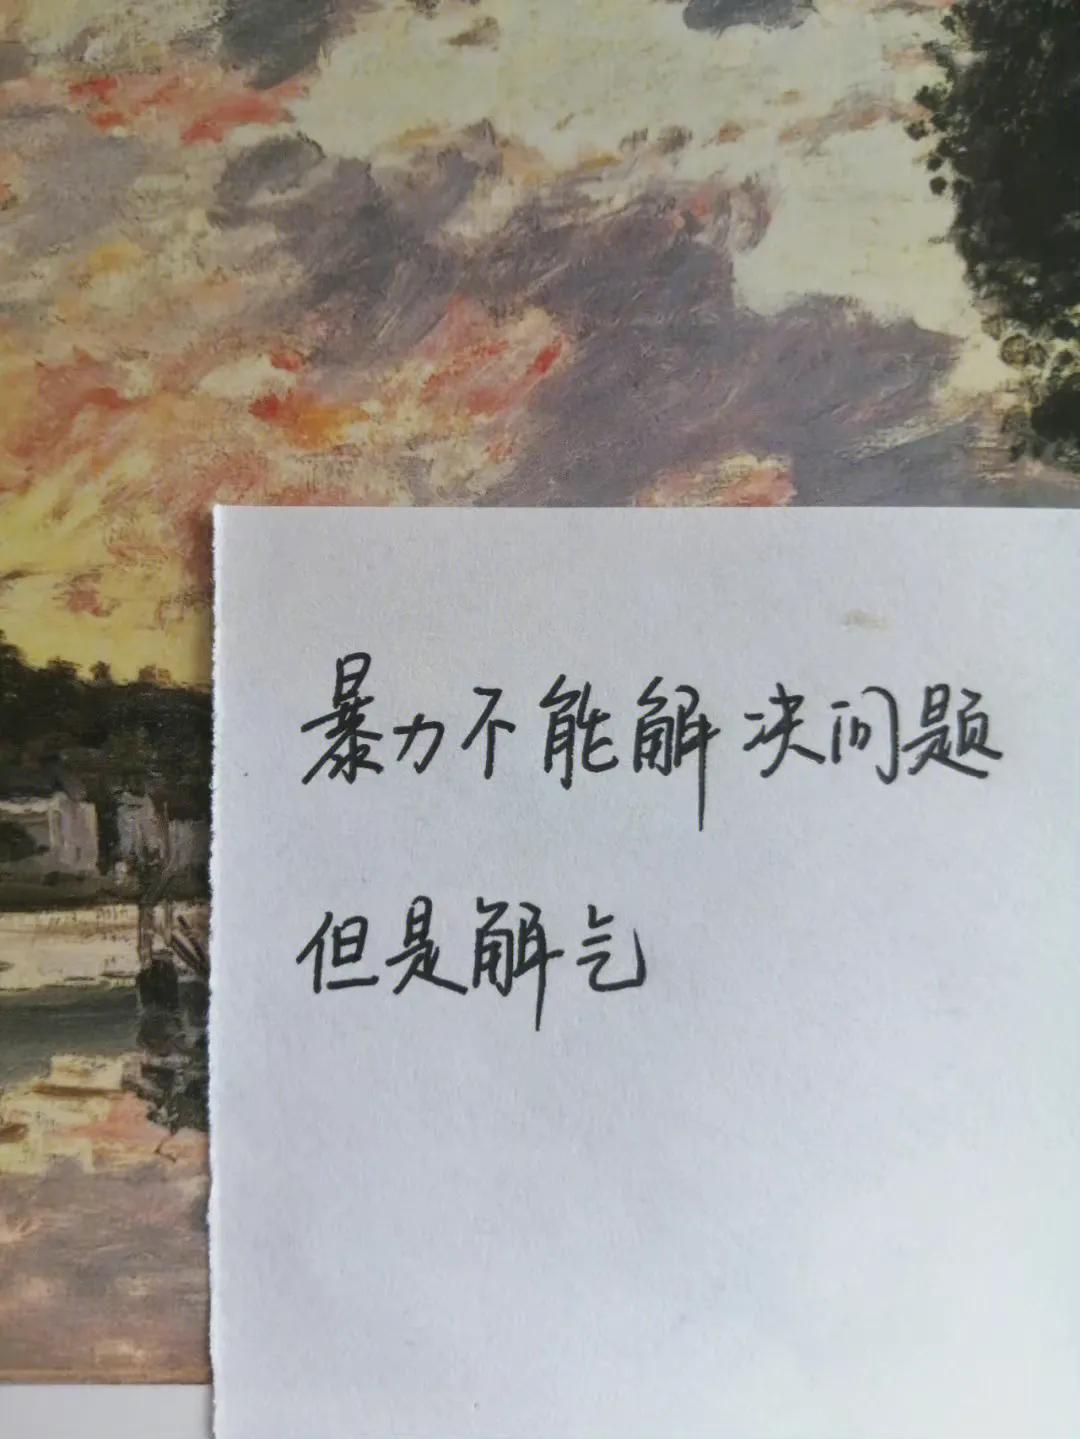 暴力不能解决问题
但是解气